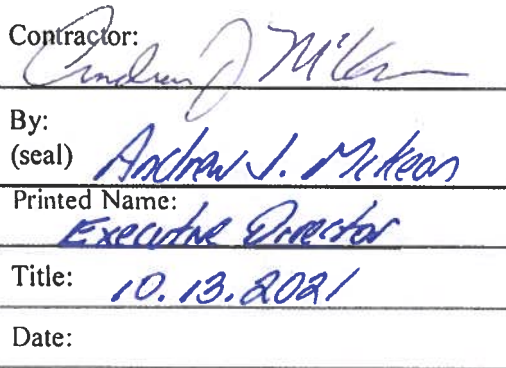 Contractor:
Andrew J McKean
By:
(seal) Andrew J. McKean
Printed Name:
Executive Director
Title: 10.13.2021
Date: